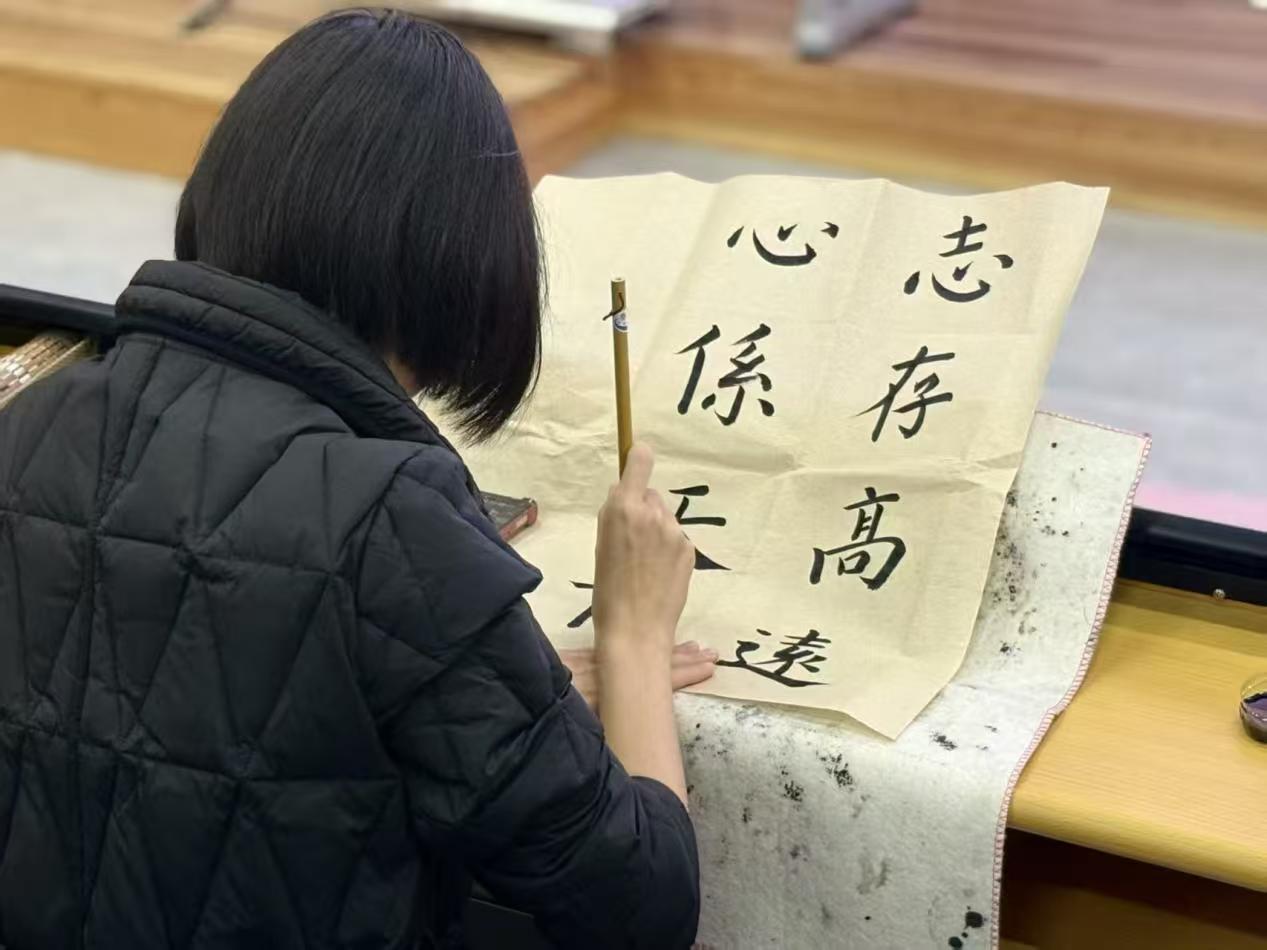 志存高遠
心係天